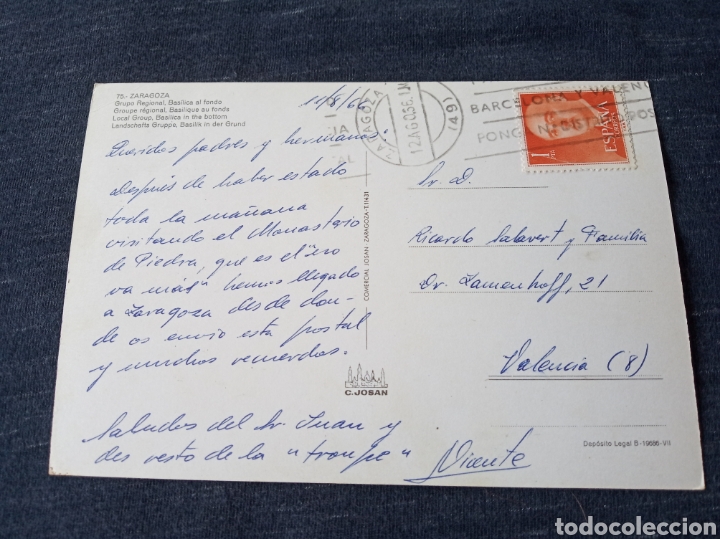 75.- ZARAGOZA
Grupo Regional, Basílica al fondo
Groupe régional, Basilique au fonds
Local Group, Basilica in the bottom
Landschafts Gruppe, Basilik in der Grund
12/8/66
ZARAGOZA
12AGO.66
(49)
BARCELONA Y VALENCIA
PONGA
1 PTA
ESPAÑA
CORREOS
Queridos padres y hermanos:
Después de haber estado
toda la mañana
visitando el Monasterio
de Piedra, que es el "no
va más" hemos llegado
a Zaragoza desde don-
de os envio esta postal
y muchos recuerdos.
Saludos del Sr Juan y
del resto de la "troupe"
Vicente
COMERCIAL JOSAN. ZARAGOZA-T.11431
C. JOSAN
Sr. D.
Ricardo Salavert y Familia
Dr. Zamenhoff, 21
Valencia (8)
Depósito Legal B-19666-VII
todocoleccion